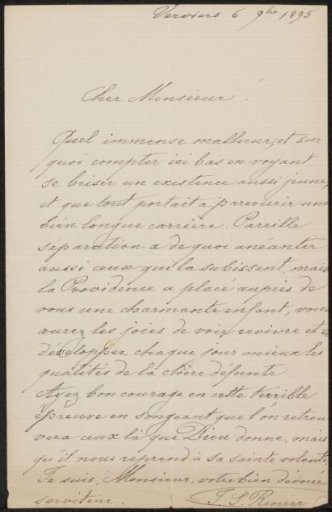 Verviers 6 9bre 1895
Cher Monsieur !
Quel immense malheur, et sur
quoi compter ici bas en voyant
se briser un existence aussi jeune
et que tout portait à parcourir une
bien longue carrière. Pareille
séparation a de quoi anéantir
aussi ceux qui la subissent, mais
la Providence a placé auprès de
vous une charmante enfant, vous
aurez les joies de voir revivre et
développer chaque jour mieux les
qualités de la chère défunte.
Ayez bon courage en cette terrible
épreuve en songeant que l'on retrou-
vera ceux là que Dieu donne, mais
qu'il nous reprend à sa sainte volonté.
Je suis, Monsieur, votre bien dévoué
serviteur. J. S. Renier